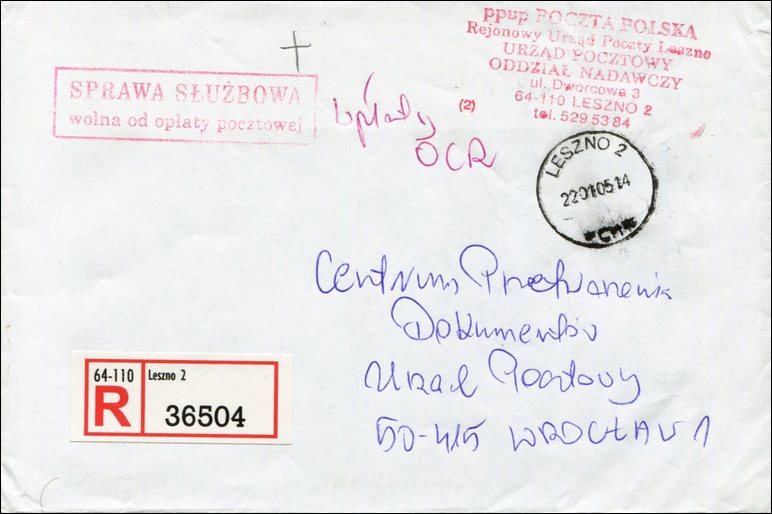 ppup POCZTA POLSKA
Rejonowy Urząd Poczty Leszno
URZĄD POCZTOWY
ODDZIAŁ NADAWCZY
ul. Dworcowa 3
64-110 LESZNO 2
tel. 529 53 84
SPRAWA SŁUŻBOWA
wolna od opłaty pocztowej
(2)
wpłaty
OCR
LESZNO 2
220105.14
*CM*
Centrum Przetwarzania
Dokumentów
Urząd Pocztowy
50-415 WROCŁAW 1
64-110
Leszno 2
R
36504